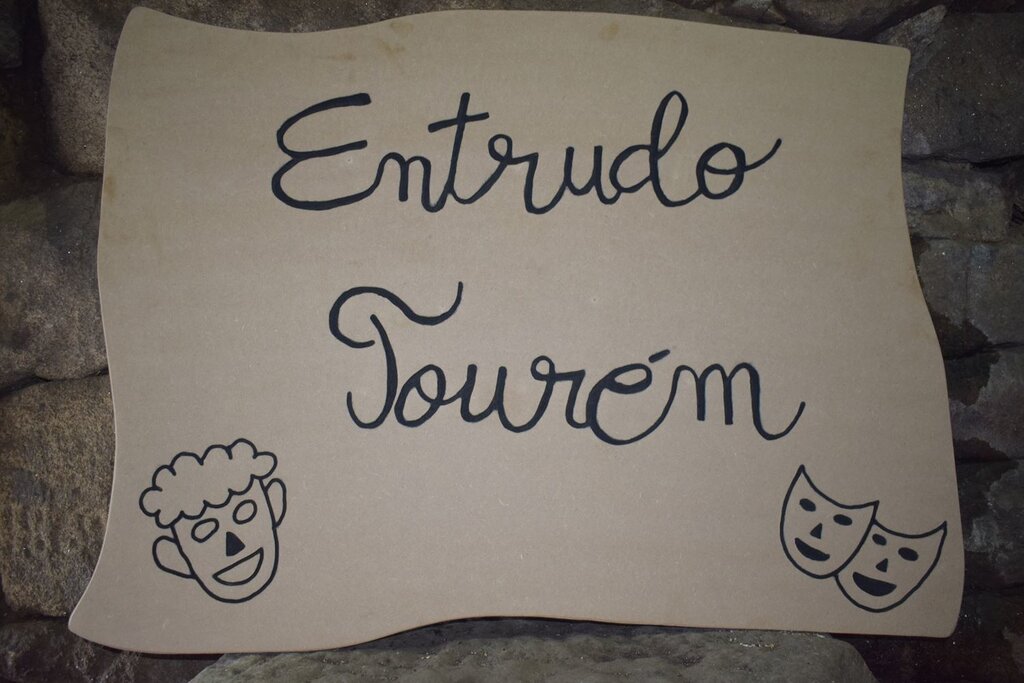 Entrudo
Tourém